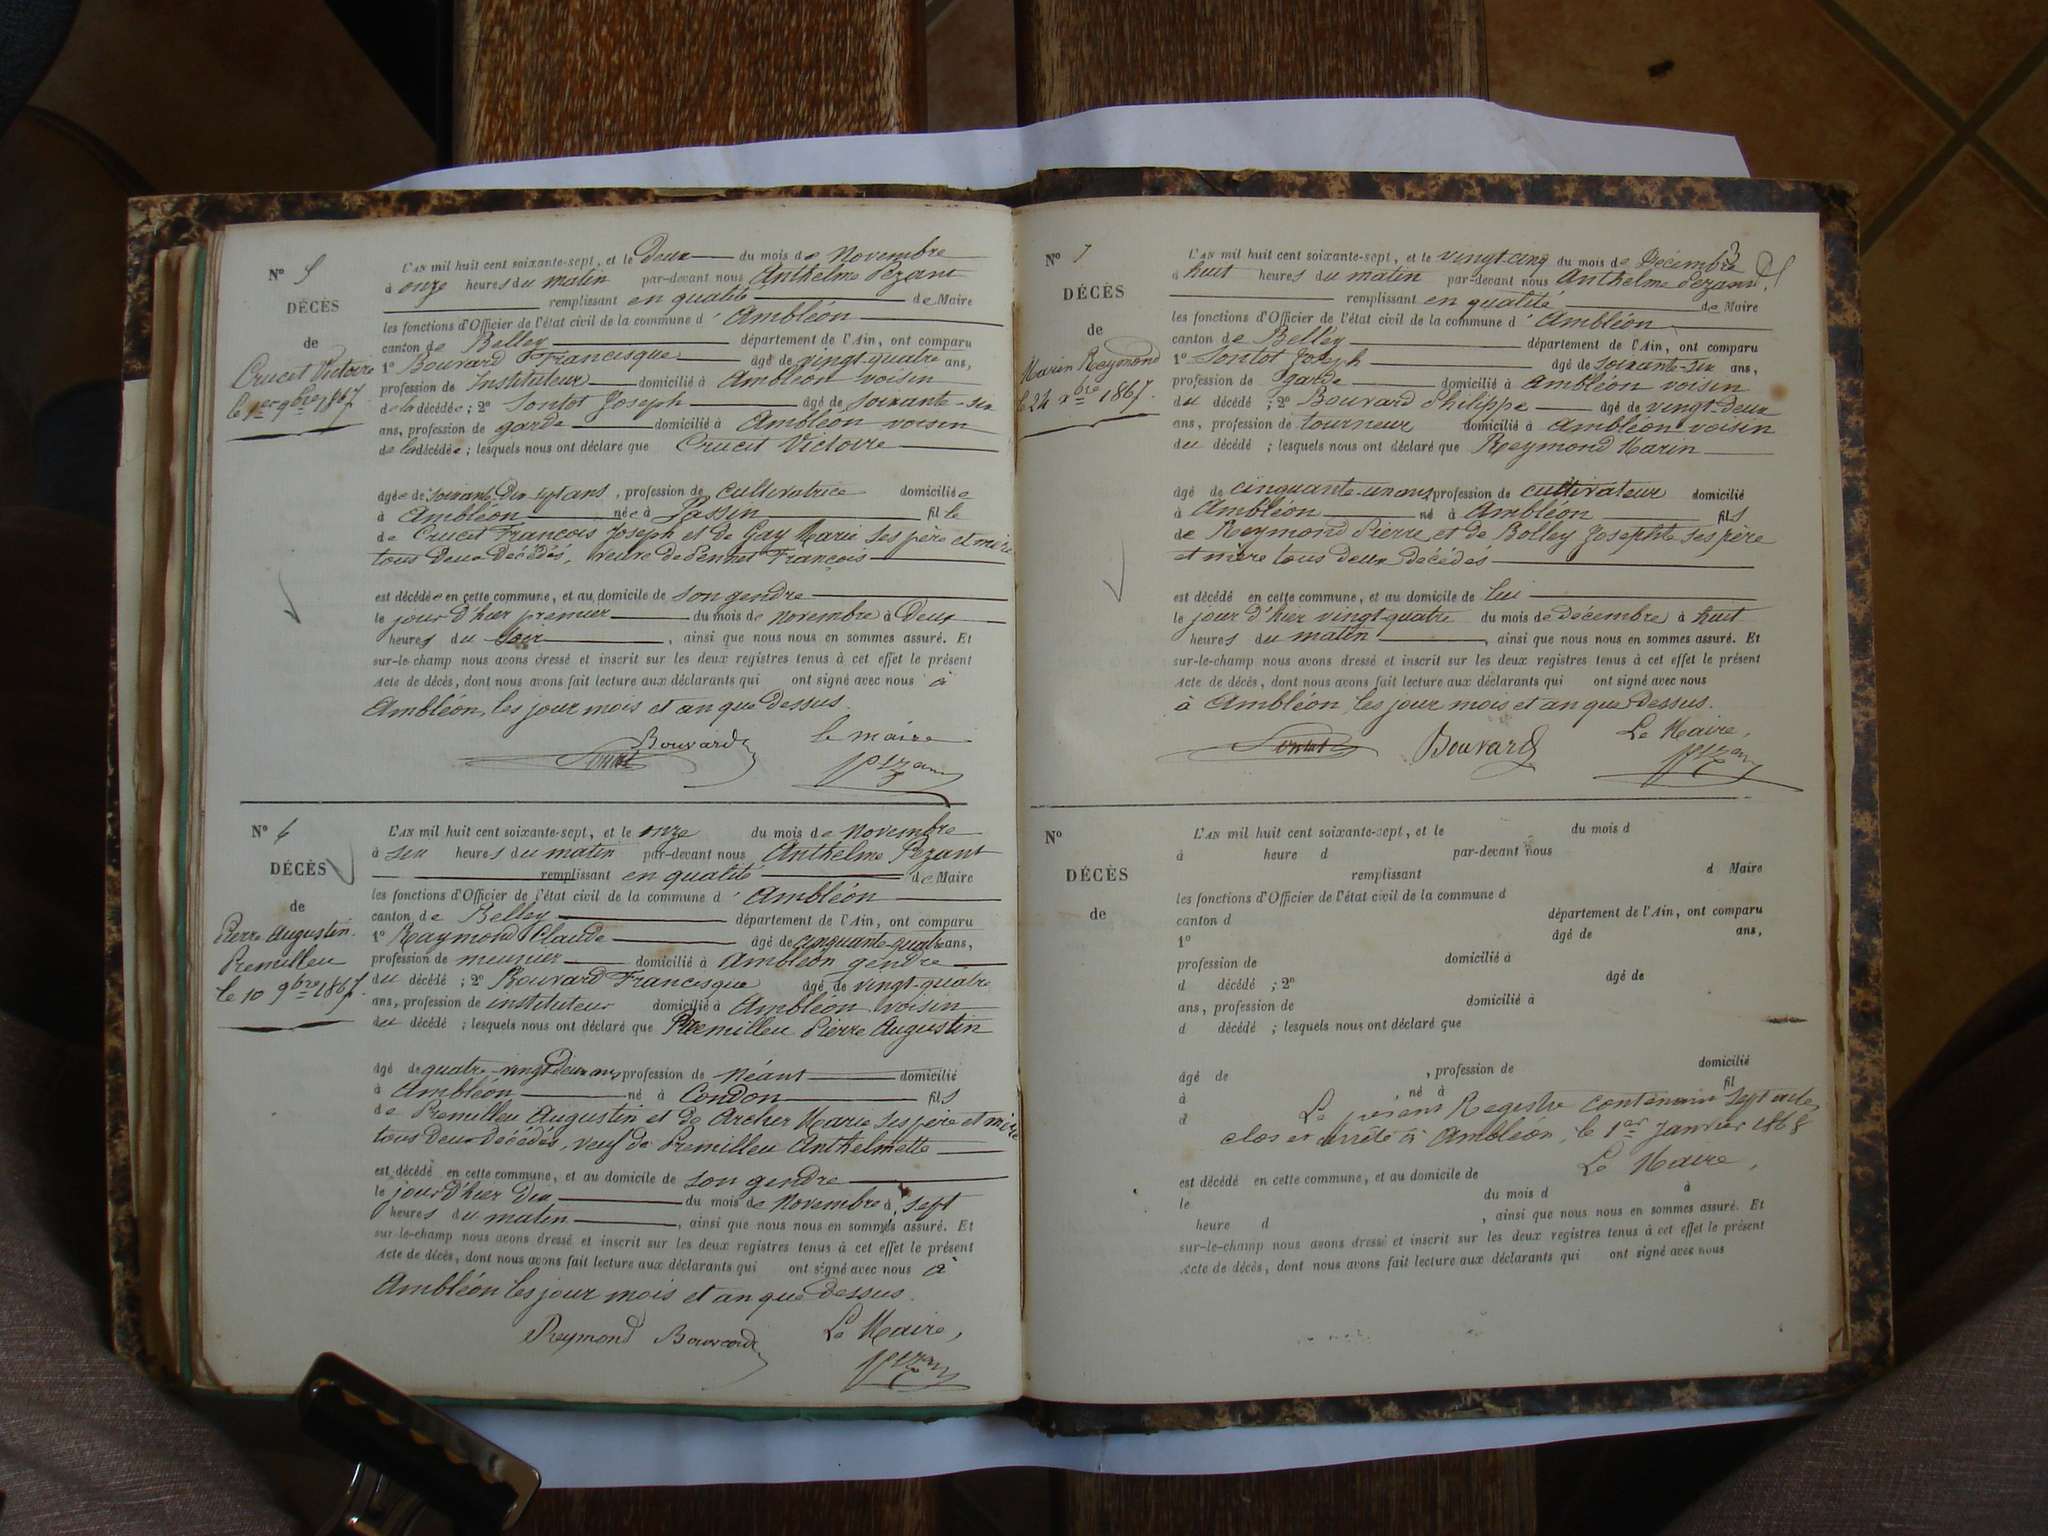 N° 5
DÉCÈS
de
Crucet Victoire
le 1er 9bre 1867
L'AN mil huit cent soixante-sept, et le Deux du mois de Novembre
à onze heures du matin par-devant nous Anthelme Pezant
remplissant en qualité de Maire
les fonctions d'Officier de l'état civil de la commune d'Ambléon
canton de Belley département de l'Ain, ont comparu
1° Bouvard Francisque âgé de vingt-quatre ans,
profession de Instituteur domicilié à Ambléon voisin
de la décédée ; 2° Sontot Joseph âgé de soixante-six
ans, profession de garde domicilié à Ambléon voisin
de la décédée ; lesquels nous ont déclaré que Crucet Victoire
âgée de soixante-Dix-sept ans, profession de cultivatrice domiciliée
à Ambléon née à fille
de Crucet François Joseph et de Gay Marie ses père et mère
tous Deux Décédés, veuve de François
est décédée en cette commune, et au domicile de son gendre
le jour d'hier premier du mois de novembre à Deux
heures du soir, ainsi que nous nous en sommes assuré. Et
sur-le-champ nous avons dressé et inscrit sur les deux registres tenus à cet effet le présent
Acte de décès, dont nous avons fait lecture aux déclarants qui ont signé avec nous à
Ambléon, les jour mois et an que Dessus.
Bouvard le maire
Sontot Pezant
N° 6
DÉCÈS
de
Pierre Augustin
Premilleu
le 10 9bre 1867
L'AN mil huit cent soixante-sept, et le onze du mois de Novembre
à six heures du matin par-devant nous Anthelme Pezant
remplissant en qualité de Maire
les fonctions d'Officier de l'état civil de la commune d'Ambléon
canton de Belley département de l'Ain, ont comparu
1° Raymond Claude âgé de cinquante-quatre ans,
profession de meunier domicilié à Ambléon gendre
du décédé ; 2° Bouvard Francisque âgé de vingt-quatre
ans, profession de instituteur domicilié à Ambléon voisin
du décédé ; lesquels nous ont déclaré que Premilleu Pierre Augustin
âgé de quatre-vingt Deux ans profession de Néant domicilié
à Ambléon né à Condon fils
de Premilleu Augustin et de Archer Marie ses père et mère
tous Deux Décédés, veuf de Premilleu Anthelmette
est décédé en cette commune, et au domicile de son gendre
le jour d'hier Dix du mois de Novembre à sept
heures du matin, ainsi que nous nous en sommes assuré. Et
sur-le-champ nous avons dressé et inscrit sur les deux registres tenus à cet effet le présent
Acte de décès, dont nous avons fait lecture aux déclarants qui ont signé avec nous à
Ambléon les jour mois et an que Dessus.
Reymond Bouvard Le Maire,
Pezant
N° 7
DÉCÈS
de
Marin Reymond
le 24 xbre 1867.
L'AN mil huit cent soixante-sept, et le vingt-cinq du mois de Décembre
à huit heures du matin par-devant nous Anthelme Pezant
remplissant en qualité de Maire
les fonctions d'Officier de l'état civil de la commune d'Ambléon
canton de Belley département de l'Ain, ont comparu
1° Sontot Joseph âgé de soixante-six ans,
profession de garde domicilié à Ambléon voisin
du décédé ; 2° Bouvard Philippe âgé de vingt-deux
ans, profession de tourneur domicilié à Ambléon voisin
du décédé ; lesquels nous ont déclaré que Reymond Marin
âgé de cinquante-un ans profession de cultivateur domicilié
à Ambléon né à Ambléon fils
de Reymond Pierre et de Bolley Josephte ses père
et mère tous deux décédés
est décédé en cette commune, et au domicile de lui
le jour d'hier vingt-quatre du mois de décembre à huit
heures du matin, ainsi que nous nous en sommes assuré. Et
sur-le-champ nous avons dressé et inscrit sur les deux registres tenus à cet effet le présent
Acte de décès, dont nous avons fait lecture aux déclarants qui ont signé avec nous
à Ambléon, les jour mois et an que Dessus.
Le Maire,
Sontot Bouvard Pezant
N°
DÉCÈS
de
L'AN mil huit cent soixante-sept, et le du mois d
à heure d par-devant nous
remplissant d Maire
les fonctions d'Officier de l'état civil de la commune d
canton d département de l'Ain, ont comparu
1° âgé de ans,
profession de domicilié à
d décédé ; 2° âgé de
ans, profession de domicilié à
d décédé ; lesquels nous ont déclaré que
âgé de , profession de domicilié
à né à fil
d Le présent Registre contenant sept actes
clos et arrêté à Ambléon, le 1er Janvier 1868
Le Maire,
est décédé en cette commune, et au domicile de
le du mois d à
heure d , ainsi que nous nous en sommes assuré. Et
sur-le-champ nous avons dressé et inscrit sur les deux registres tenus à cet effet le présent
Acte de décès, dont nous avons fait lecture aux déclarants qui ont signé avec nous